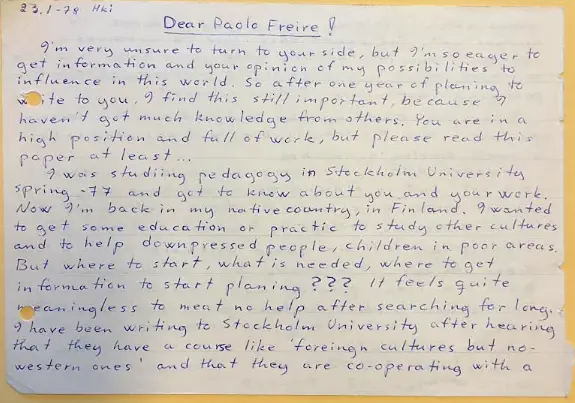 23.1-78 Hki
Dear Paolo Freire!
I'm very unsure to turn to your side, but I'm so eager to
get information and your opinion of my possibilities to
influence in this world. So after one year of planing to
write to you, I find this still important, because I
haven't got much knowledge from others. You are in a
high position and full of work, but please read this
paper at least...
I was studiing pedagogy in Stockholm University
spring -77 and got to know about you and your work.
Now I'm back in my native country, in Finland. I wanted
to get some education or practic to study other cultures
and to help downpressed people, children in poor areas.
But where to start, what is needed, where to get
information to start planing ??? It feels quite
meaningless to meat no help after searching for long.
I have been writing to Stockholm University after hearing
that they have a course like 'foreingn cultures but no-
western ones' and that they are co-operating with a